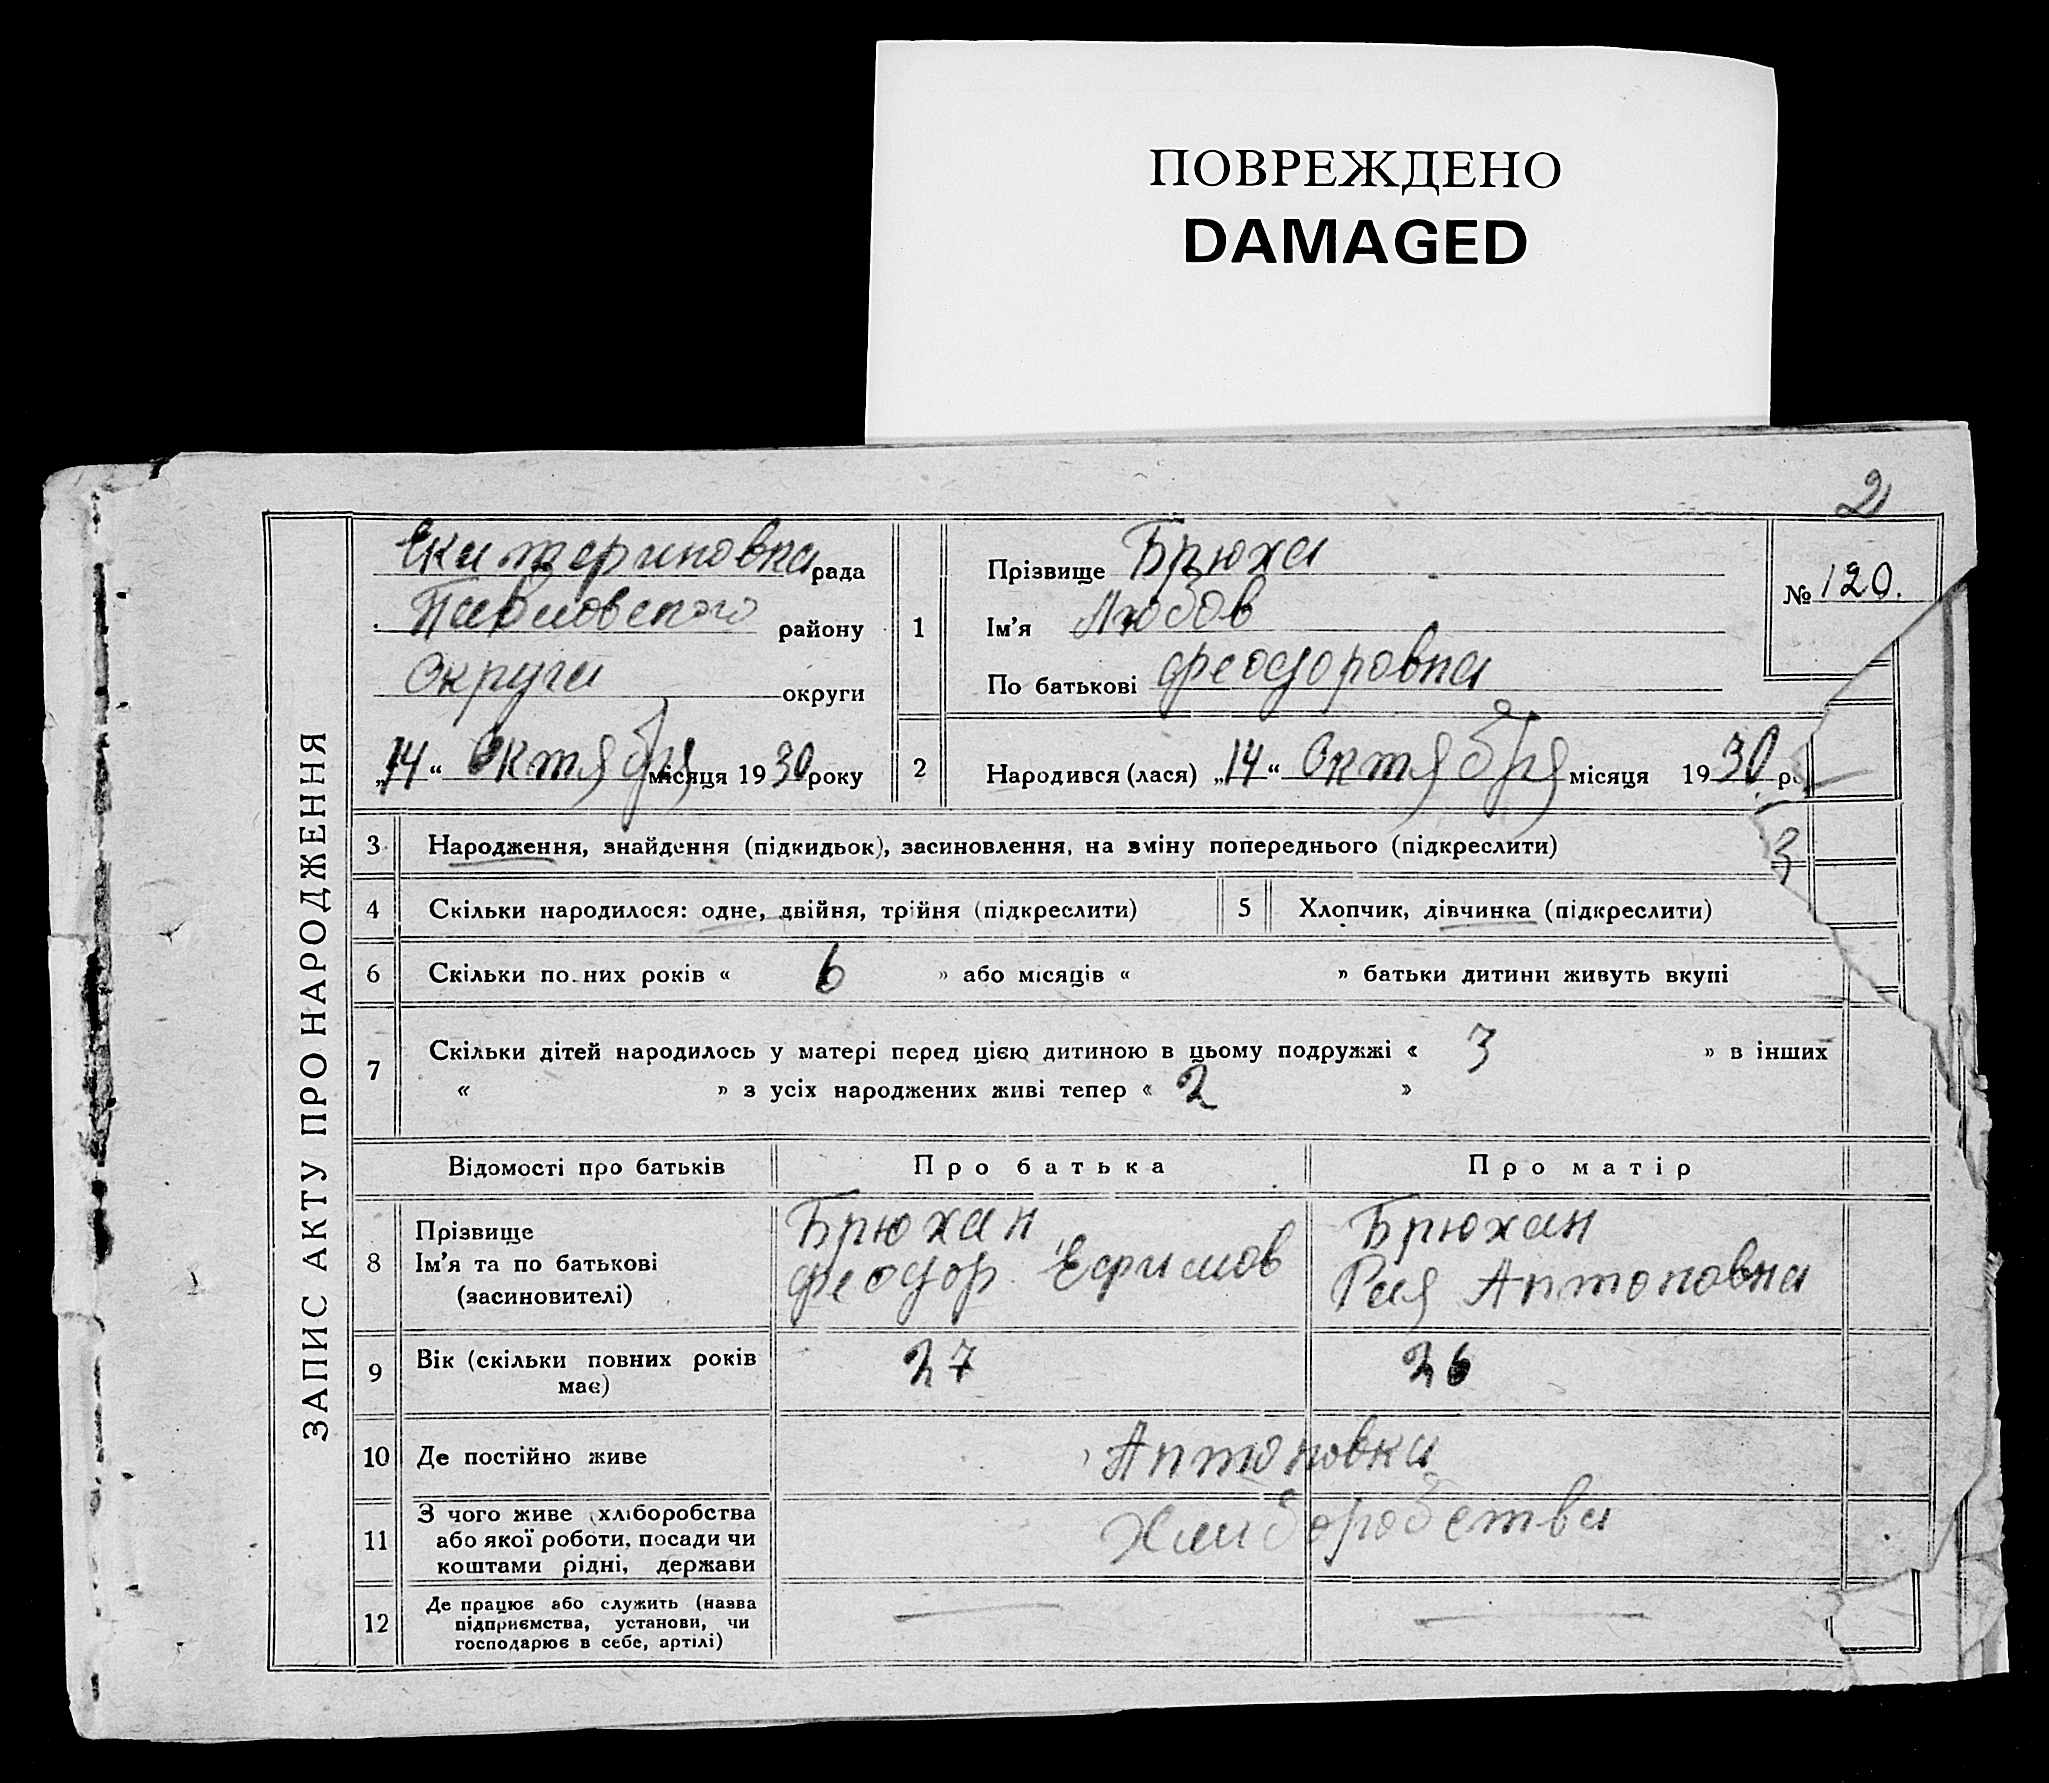 ПОВРЕЖДЕНО
DAMAGED
2
ЗАПИС АКТУ ПРО НАРОДЖЕННЯ
Екатериновка рада
Павловского району
Округи округи
„14“ Октября місяця 1930 року
1
Прізвище Брюха
Ім'я Любов
По батькові феодоровна
№ 120.
2
Народився (лася) „14“ Октября місяця 1930 р
3
Народження, знайдення (підкидьок), засиновлення, на зміну попереднього (підкреслити)
3
4
Скільки народилося: одне, двійня, трійня (підкреслити)
5
Хлопчик, дівчинка (підкреслити)
6
Скільки по.них років « 6 » або місяців « » батьки дитини живуть вкупі
7
Скільки дітей народилось у матері перед цією дитиною в цьому подружжі « 3 » в інших
« » з усіх народжених живі тепер « 2 »
Відомості про батьків
Про батька
Про матір
8
Прізвище
Ім'я та по батькові
(засиновителі)
Брюхан
феодор Ефимов
Брюхан
Рая Антоновна
9
Вік (скільки повних років
має)
27
26
10
Де постійно живе
Антоновка
11
З чого живе (хліборобства
або якої роботи, посади чи
коштами рідні, держави
Хлиборобства
12
Де працює або служить (назва
підприємства, установи, чи
господарює в себе, артілі)